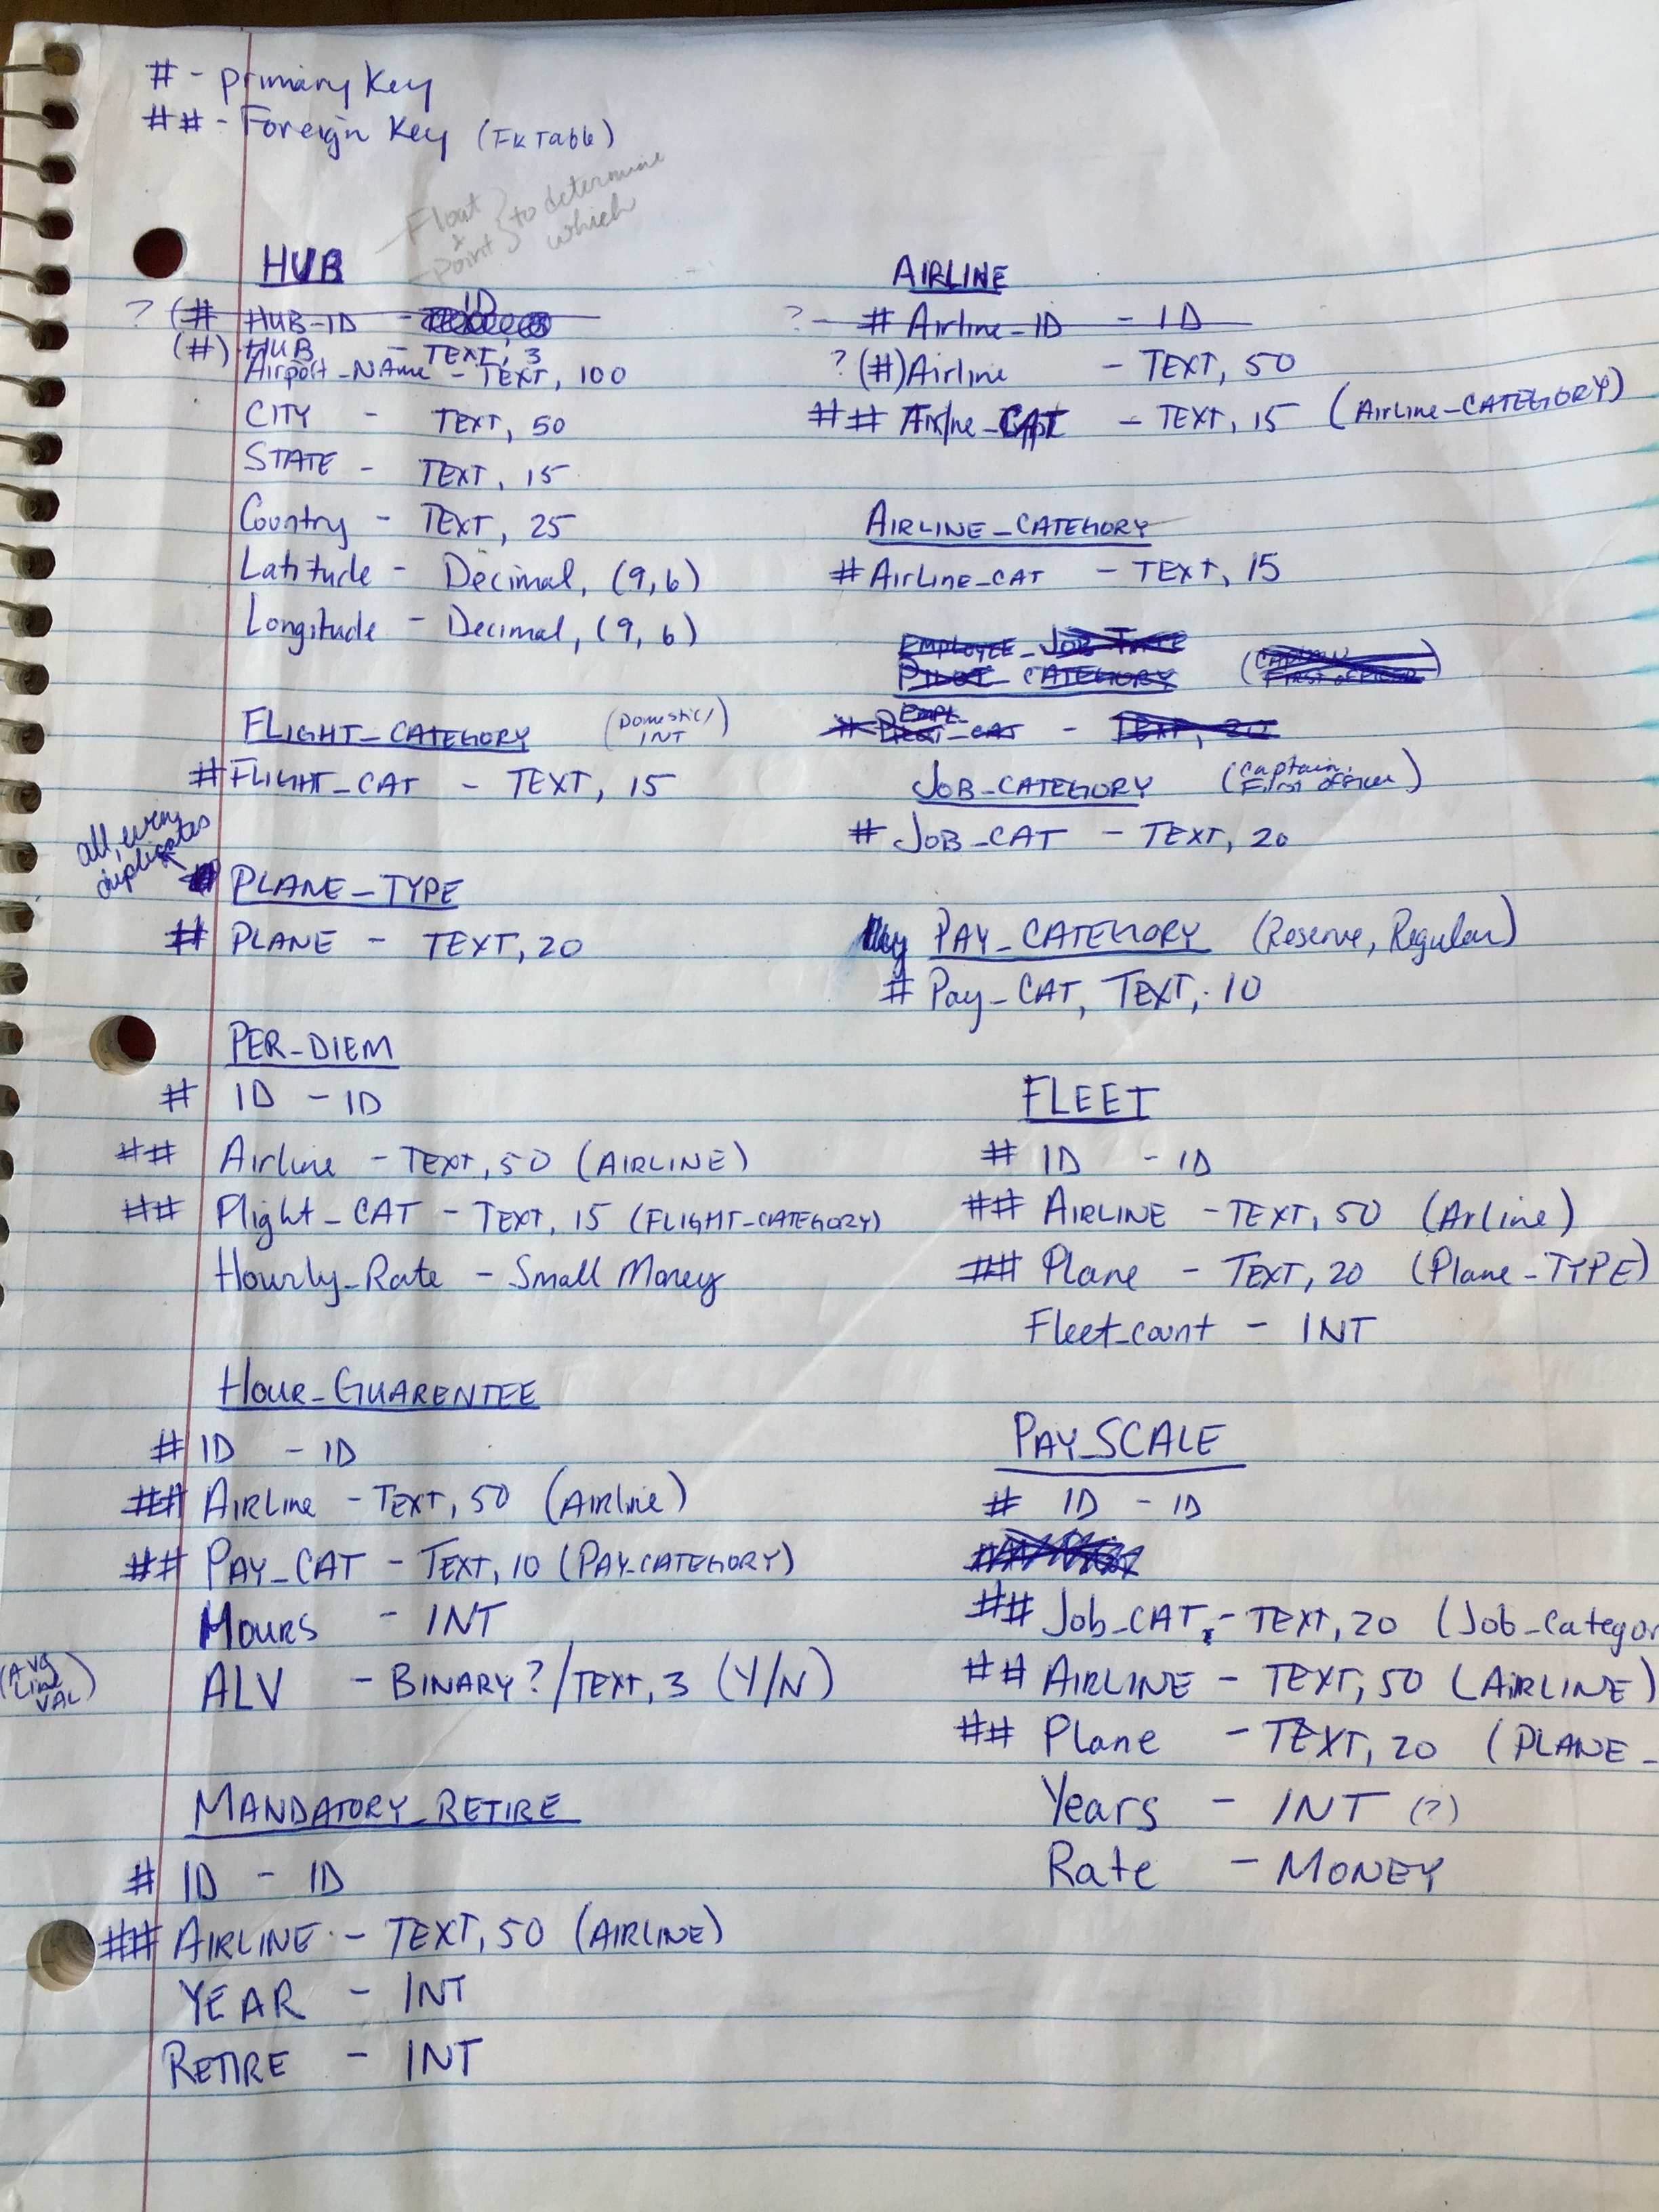 # - primary Key
## - Foreign Key (FK Table)
- Float
&
- Point } to determine
which
HUB
? (# HUB-ID - ID
(#) HUB - TEXT, 3
Airport_NAme - TEXT, 100
CITY - TEXT, 50
STATE - TEXT, 15
Country - TEXT, 25
Latitude - Decimal, (9,6)
Longitude - Decimal, (9,6)
FLIGHT_CATEGORY (Domestic/
INT)
# FLIGHT_CAT - TEXT, 15
all, even
duplicates
# PLANE_TYPE
# PLANE - TEXT, 20
PER-DIEM
# ID - ID
## Airline - TEXT, 50 (AIRLINE)
## Flight_CAT - TEXT, 15 (FLIGHT-CATEGORY)
Hourly_Rate - Small Money
HOUR_GUARENTEE
# ID - ID
## AIRLine - TEXT, 50 (AIRline)
## PAY_CAT - TEXT, 10 (PAY-CATEGORY)
Hours - INT
(AVG
Line
VAL)
ALV - BINARY?/TEXT, 3 (Y/N)
MANDATORY_RETIRE
# ID - ID
## AIRLINE - TEXT, 50 (AIRLINE)
YEAR - INT
RETIRE - INT
AIRLINE
? - # Airline_ID - ID
? (#) Airline - TEXT, 50
## Airline_CAT - TEXT, 15 (Airline-CATEGORY)
AIRLINE_CATEGORY
# AirLine_CAT - TEXT, 15
EMPLOYEE_JOB TITLE
PILOT CATEGORY (CAPTAIN
FIRST OFFICER)
EMPL
# PILOT_CAT - TEXT, 20
JOB_CATEGORY (Captain,
First officer)
# JOB_CAT - TEXT, 20
PAY_CATEGORY (Reserve, Regular)
# Pay_CAT, TEXT, 10
FLEET
# ID - ID
## AIRLINE - TEXT, 50 (Arline)
## Plane - TEXT, 20 (Plane-TYPE)
Fleet_count - INT
PAY_SCALE
# ID - ID
## Job_CAT, - TEXT, 20 (Job_Categor
## AIRLINE - TEXT, 50 (AIRLINE)
## Plane - TEXT, 20 (PLANE_
Years - INT (?)
Rate - MONEY